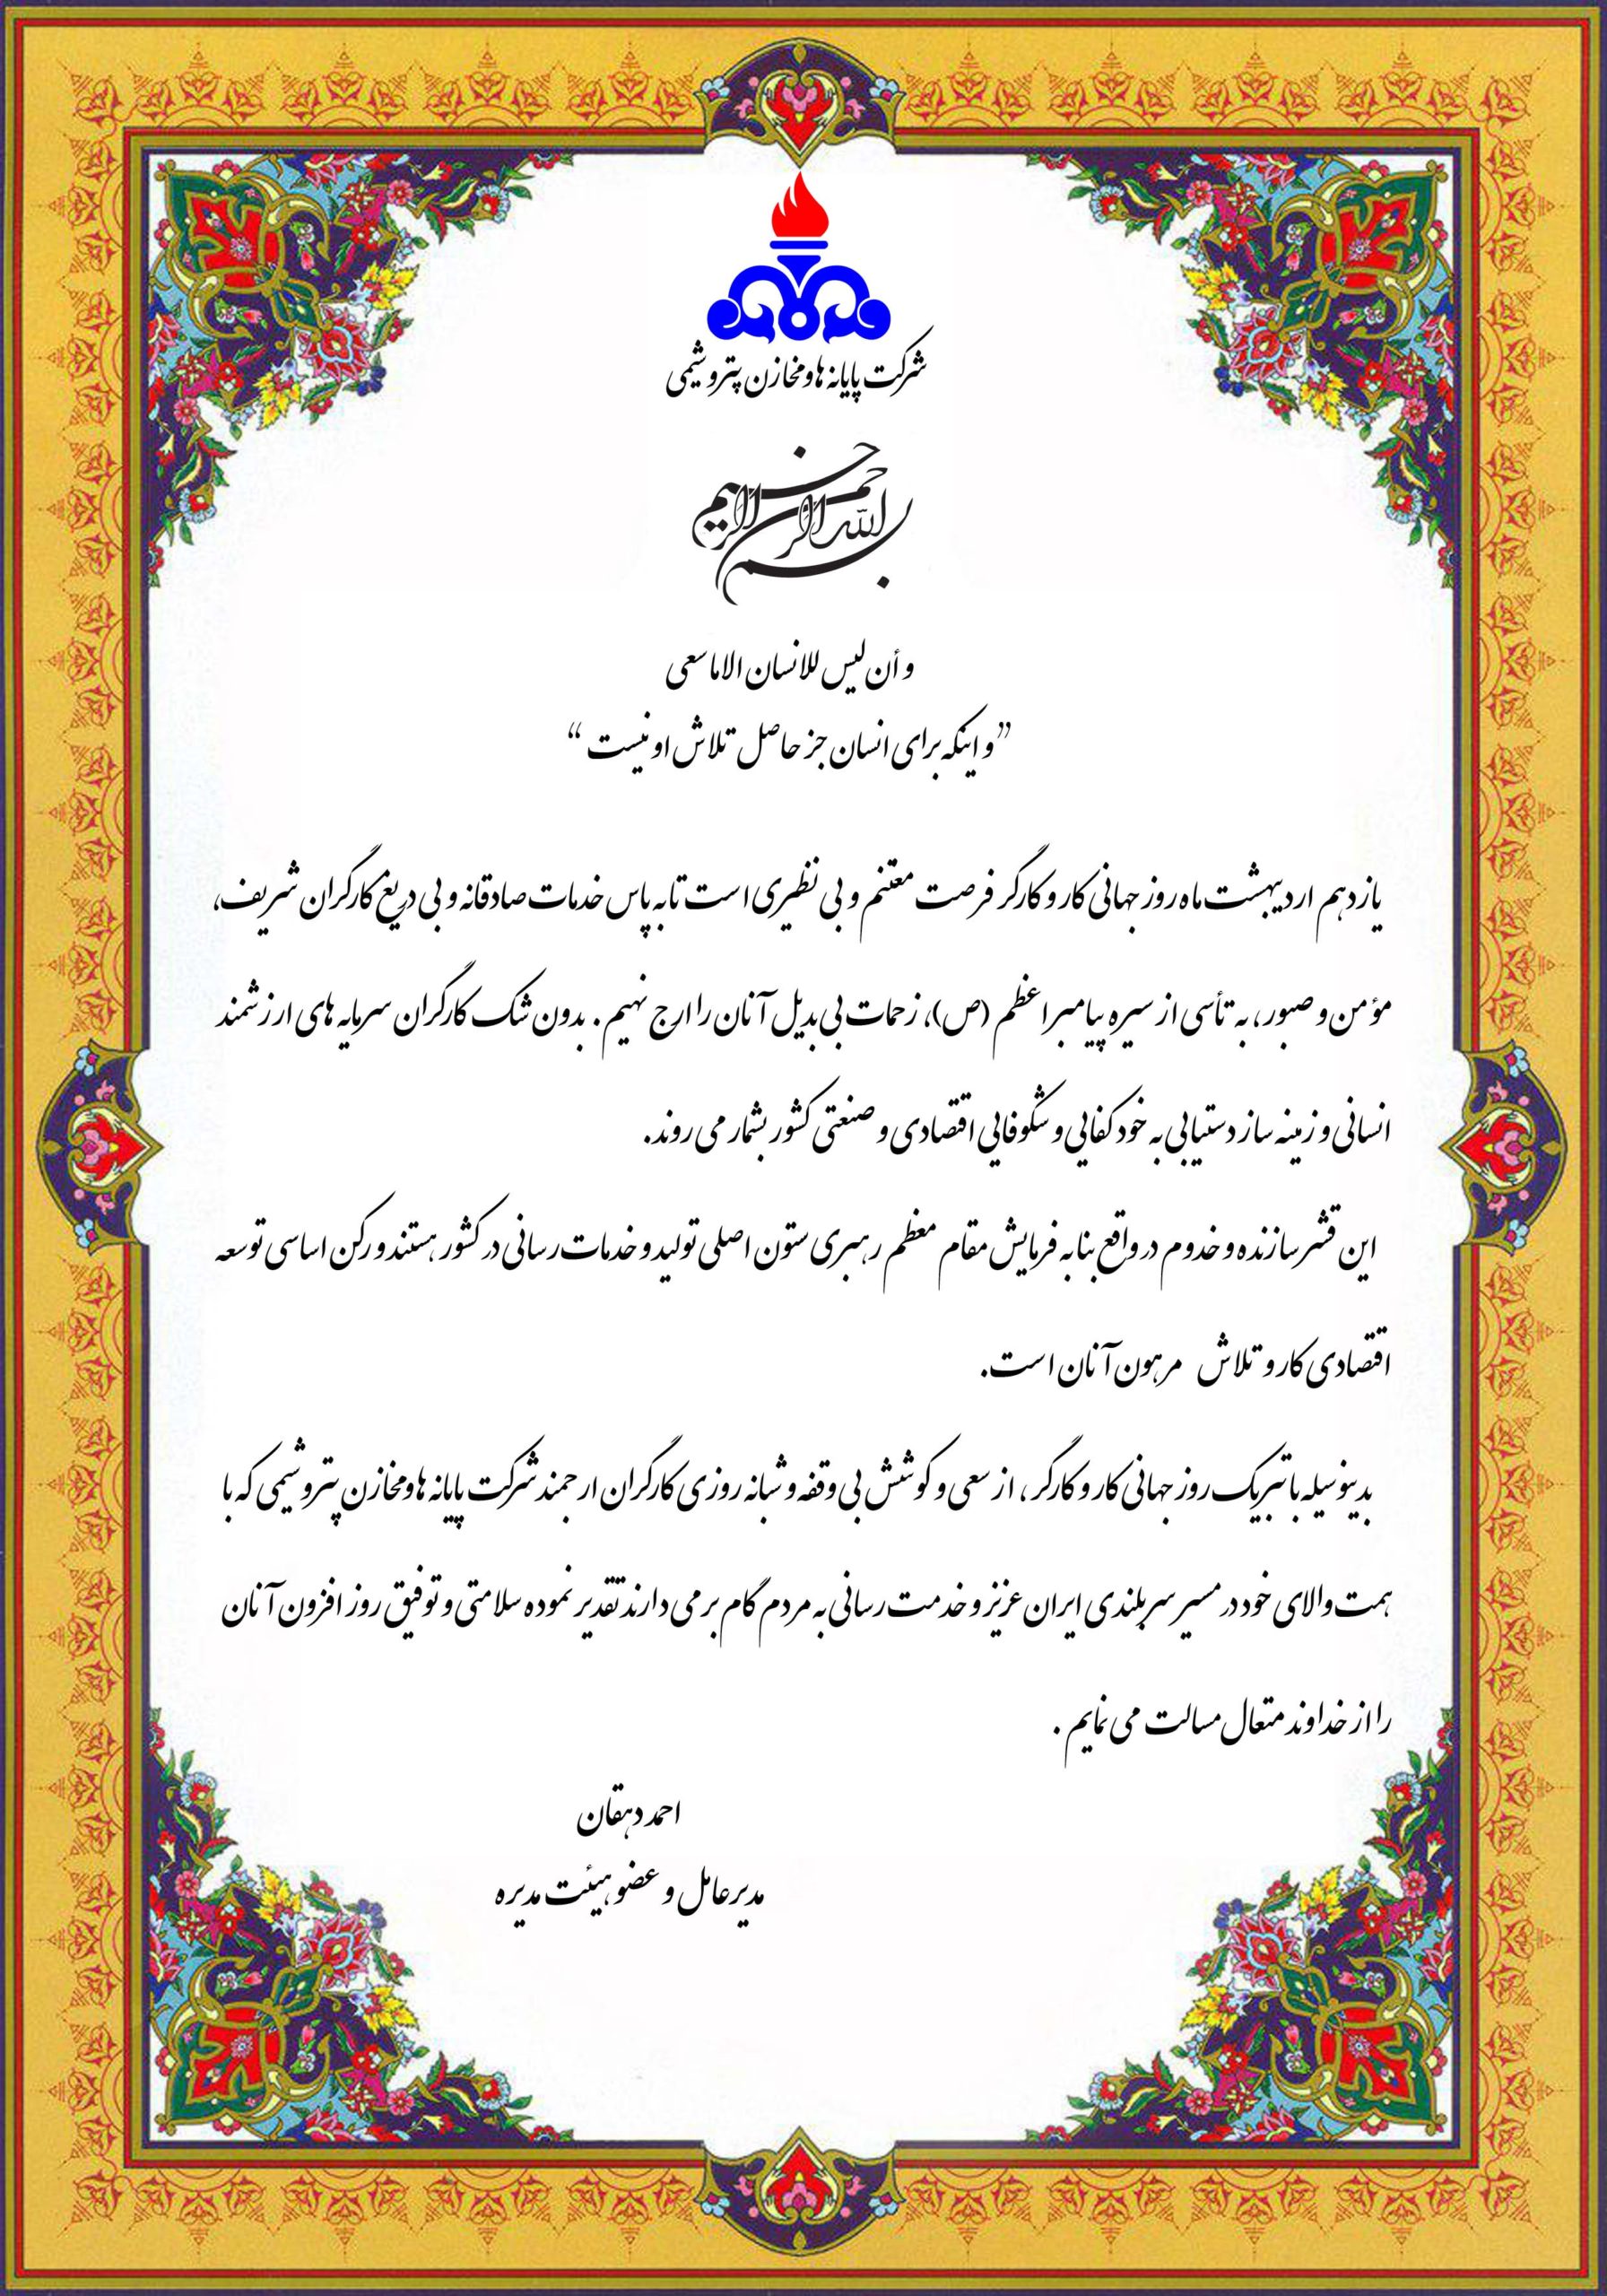 شرکت پایانه ها و مخازن پتروشیمی
بسم الله الرحمن الرحیم
و أن لیس للانسان الا ما سعی
”و اینکه برای انسان جز حاصل تلاش او نیست“
یازدهم اردیبهشت ماه روز جهانی کار و کارگر فرصت مغتنم و بی نظیری است تا به پاس خدمات صادقانه و بی دریغ کارگران شریف،
مؤمن و صبور، به تأسی از سیره پیامبر اعظم (ص)، زحمات بی بدیل آنان را ارج نهیم. بدون شک کارگران سرمایه های ارزشمند
انسانی و زمینه ساز دستیابی به خودکفایی و شکوفایی اقتصادی و صنعتی کشور بشمار می روند.
این قشر سازنده و خدوم در واقع بنا به فرمایش مقام معظم رهبری ستون اصلی تولید و خدمات رسانی در کشور هستند و رکن اساسی توسعه
اقتصادی کار و تلاش مرهون آنان است.
بدینوسیله با تبریک روز جهانی کار و کارگر، از سعی و کوشش بی وقفه و شبانه روزی کارگران ارجمند شرکت پایانه ها و مخازن پتروشیمی که با
همت والای خود در مسیر سربلندی ایران عزیز و خدمت رسانی به مردم گام برمی دارند تقدیر نموده سلامتی و توفیق روز افزون آنان
را از خداوند متعال مسالت می نمایم .
احمد دهقان
مدیرعامل و عضو هیئت مدیره